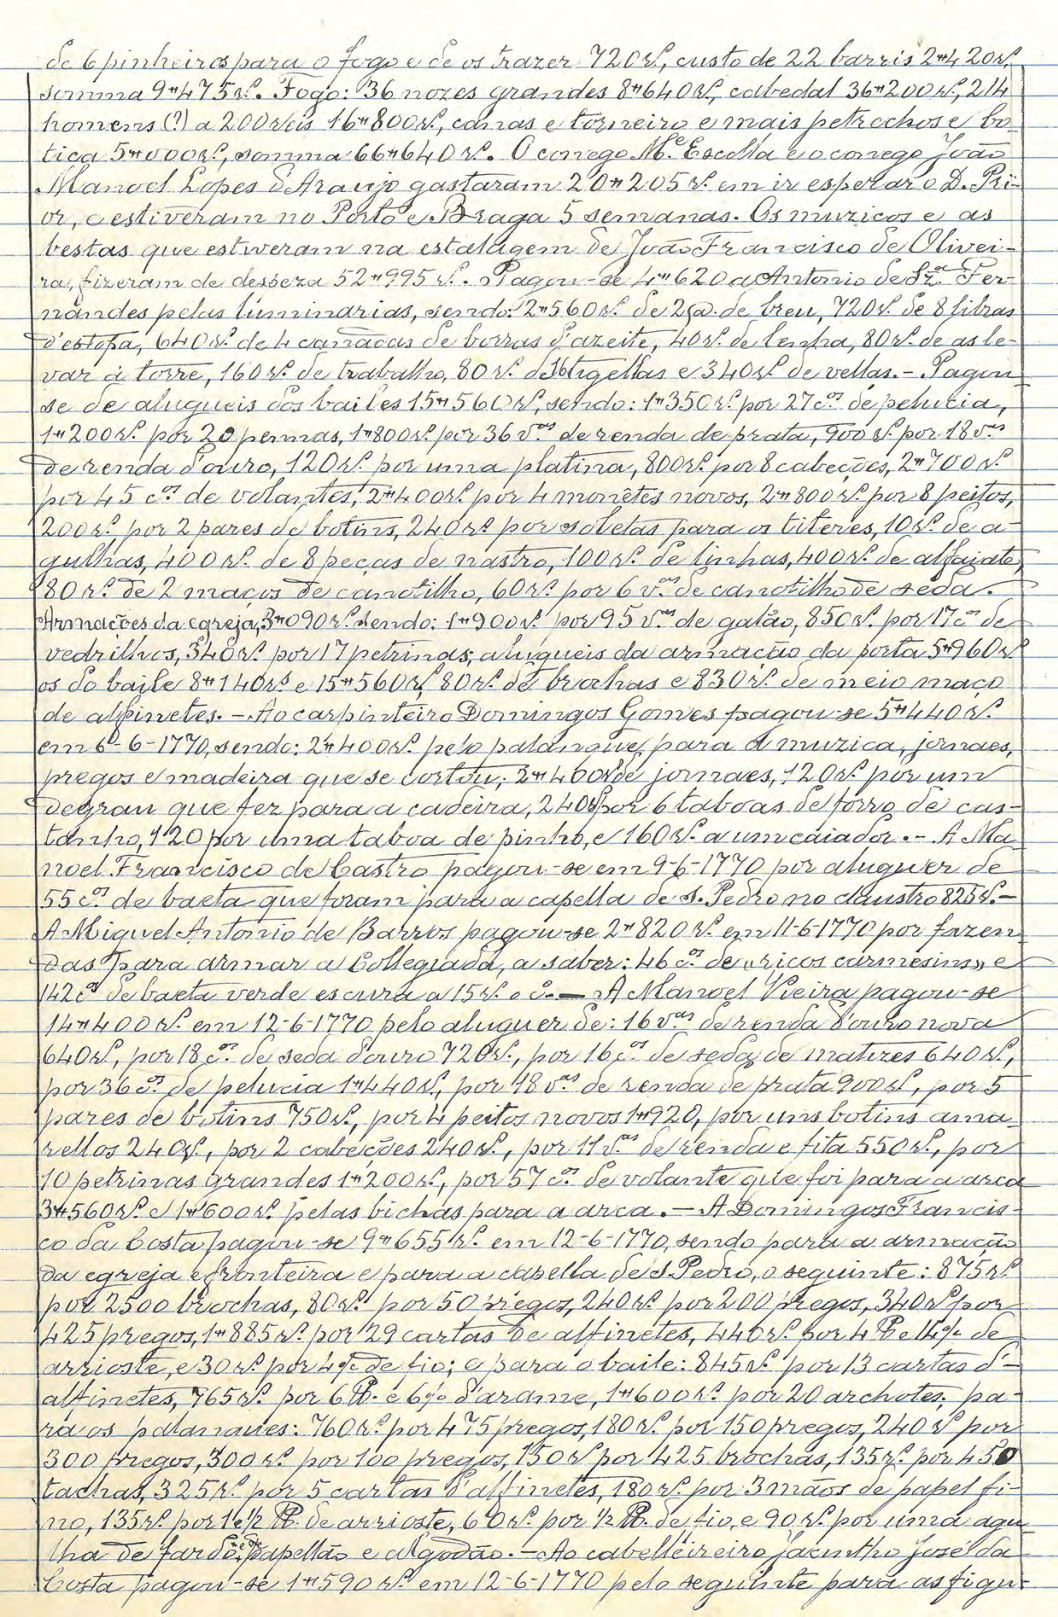 de 6 pinheiros para o fogo e de os trazer 720 rs., custo de 22 barris 2#420 rs.,
somma 9#475 rs. Fogo: 36 nozes grandes 8#640 rs., cabedal 36#200 rs., 214
homens (?) a 200 reis 16#800 rs., canas e torneiro e mais petrechos e bo-
tica 5#000 rs., somma 66#640 rs. O conego M.el Escolla e o conego João
Manoel Lopes d'Araujo gastaram 20#205 rs. em ir esperar o D. Pri-
or, e estiveram no Porto e Braga 5 semanas. Os muzicos e as
bestas que estiveram na estalagem de João Francisco de Olivei-
ra, fizeram de despeza 52#995 rs. Pagou-se 4#620 a Antonio de Sz.a Fer-
nandes pelas luminarias, sendo: 2#560 rs. de 2 @. de breu, 720 rs. de 8 libras
d'estopa, 640 rs. de 4 canacas de borras d'azeite, 40 rs. de lenha, 80 rs. de as le-
var á torre, 160 rs. de trabalho, 80 rs. de 16 tigellas e 340 rs. de vellas. - Pagou-
se de alugueis dos bailes 15#560 rs., sendo: 1#350 rs. por 27 c.os de pelucia,
1#200 rs. por 20 pennas, 1#800 rs. por 36 v.as de renda de prata, 900 rs. por 18 v.as
de renda d'ouro, 120 rs. por uma platina, 800 rs. por 8 cabeções, 2#700 rs.
por 45 c.os de volantes, 2#400 rs. por 4 monêtes novos, 2#800 rs. por 8 peitos,
200 rs. por 2 pares de botins, 240 rs. por soletas para os titeres, 10 rs. de a-
gulhas, 400 rs. de 8 peças de nastro, 100 rs. de linhas, 400 rs. de alfaiate,
80 rs. de 2 maços de canotilho, 60 rs. por 6 v.as de canotilho de seda.
Armações da egreja, 3#090 rs. sendo: 1#900 rs. por 95 v.as de galão, 850 rs. por 17 c.os de
vedrilhos, 340 rs. por 17 petrinas, alugueis da armação da porta 5#960 rs.
os do baile 8#140 rs. e 15#560 rs. 80 rs. de brochas e 830 rs. de meio maço
de alfinetes. - Ao carpinteiro Domingos Gomes pagou-se 5#440 rs.
em 6-6-1770, sendo: 2#400 rs. pelo palanque, para a muzica, jornaes,
pregos e madeira que se cortou; 2#400 rs. de jornaes, 120 rs. por um
degrau que fez para a cadeira, 240 rs. por 6 taboas de forro de cas-
tanho, 120 por uma taboa de pinho, e 160 rs. a um caiador. - A Ma-
noel Francisco de Castro pagou-se em 9-6-1770 por aluguer de
55 c.os de baeta que foram para a capella de S. Pedro no claustro 825 rs. -
A Miguel Antonio de Barros pagou-se 2#820 rs. em 11-6-1770 por fazen-
das para armar a Collegiada, a saber: 46 c.os de "ricos carmesins" e
142 c.os de baeta verde escura a 15 rs. o c.o - A Manoel Vieira pagou-se
14#400 rs. em 12-6-1770 pelo aluguer de: 16 v.as de renda d'ouro nova
640 rs., por 18 c.os de seda d'ouro 720 rs., por 16 c.os de seda de matizes 640 rs.,
por 36 c.os de pelucia 1#440 rs., por 18 v.as de renda de prata 900 rs., por 5
pares de botins 750 rs., por 4 peitos novos 1#920, por uns botins ama-
rellos 240 rs., por 2 cabeções 240 rs., por 11 v.as de renda e fita 550 rs., por
10 petrinas grandes 1#200 rs., por 57 c.os de volante que foi para a arca
3#560 rs. e 1#600 rs. pelas bichas para a arca. - A Domingos Francis-
co da Costa pagou-se 9#655 rs. em 12-6-1770, sendo para a armação
da egreja e fronteira e para a capella de S. Pedro, o seguinte: 875 rs.
por 2500 brochas, 80 rs. por 50 pregos, 240 rs. por 200 pregos, 340 rs. por
425 pregos, 1#885 rs. por 29 cartas de alfinetes, 440 rs. por 4 lb. e 14 1/2 de
arrioste, e 30 rs. por 4 1/2 de fio; e para o baile: 845 rs. por 13 cartas d'
alfinetes, 765 rs. por 6 lb. e 6 1/2 d'arame, 1#600 rs. por 20 archotes; pa-
ra os palanques: 760 rs. por 475 pregos, 180 rs. por 150 pregos, 240 rs. por
300 pregos, 300 rs. por 100 pregos, 150 rs. por 425 brochas, 135 rs. por 450
tachas, 325 rs. por 5 cartas d'alfinetes, 180 rs. por 3 mãos de papel fi-
no, 135 rs. por 1 e 1/2 lb. de arrioste, 60 rs. por 1/2 lb. de fio, e 90 rs. por uma agu-
lha de fardo, papellão e algodão. - Ao cabelleireiro Jacintho José da
Costa pagou-se 1#590 rs. em 12-6-1770 pelo seguinte para as figu-